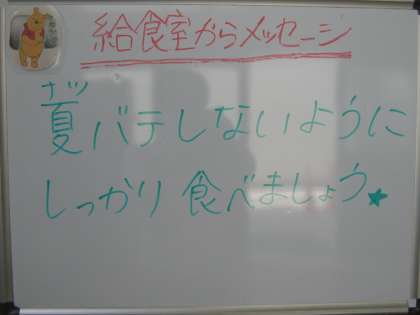 給食室からメッセージ
ナツ
夏バテしないように
しっかり食べましょう★